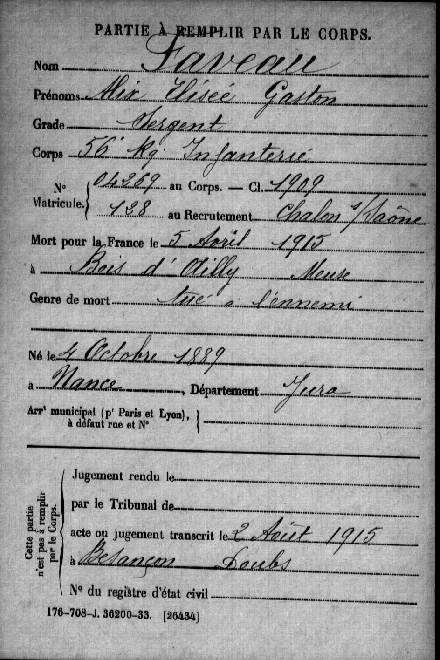 PARTIE À REMPLIR PAR LE CORPS.
Nom Faveau
Prénoms Alix Elisée Gaston
Grade Sergent
Corps 56e Rg. Infanterie
N° 04269 au Corps. — Cl. 1909
Matricule. 128 au Recrutement Chalon s/Saône
Mort pour la France le 5 Avril 1915
à Bois d'Ailly Meuse
Genre de mort tué à l'ennemi
Né le 4 Octobre 1889
à Nance, Département Jura
Arrt municipal (pr Paris et Lyon),
à défaut rue et N°
Cette partie
n'est pas à remplir
par le Corps.
Jugement rendu le
par le Tribunal de
acte ou jugement transcrit le 2 Août 1915
à Besançon Doubs
N° du registre d'état civil
176-708-J. 36200-33. [26434]